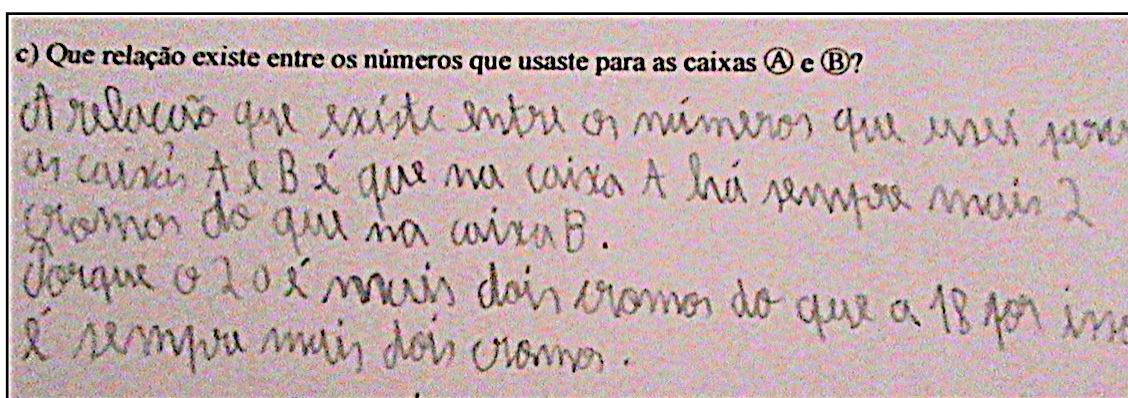 c) Que relação existe entre os números que usaste para as caixas Ⓐ e Ⓑ?
A relação que existe entre os números que usei para
as caixas A e B é que na caixa A há sempre mais 2
cromos do que na caixa B.
Porque o 20 é mais dois cromos do que a 18 por isso
é sempre mais dois cromos.